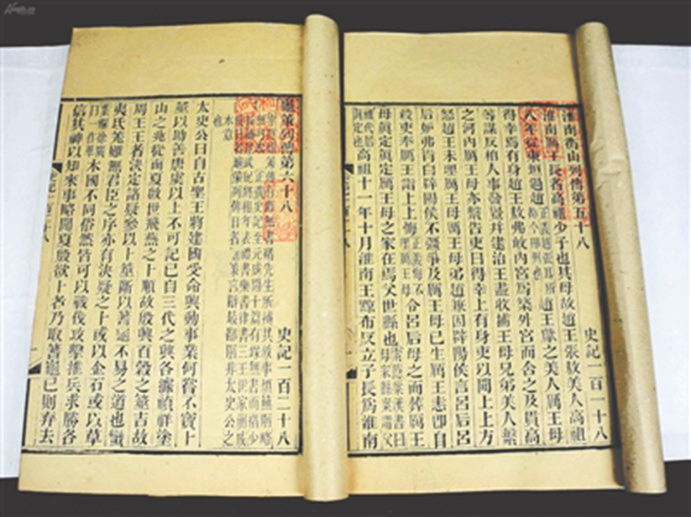 淮南衡山列傳第五十八 史記一百一十八
淮南厲王長者高祖少子也其母故趙王張敖美人高祖
八年從東垣過趙 趙王獻之美人厲王母
得幸焉有身趙王敖弗敢內宮爲築外宮而舍之及貫高
等謀反柏人事發覺并逮治王盡收捕王母兄弟美人繫
之河內厲王母亦繫告吏曰得幸上有身吏以聞上上方
怒趙王未理厲王母厲王母弟趙兼因辟陽侯言呂后呂
后妒弗肯白辟陽侯不彊爭及厲王母已生厲王恚卽自
殺吏奉厲王詣上上悔 正義悔不理厲王母 令呂后母之而葬厲王
母眞定眞定厲王母之家在焉父世縣也
高祖十一年十月淮南王黥布反立子長爲淮南
龜策列傳第六十八 史記一百二十八
太史公曰自古聖王將建國受命興動事業何嘗不寶卜
筮以助善唐虞以上不可記已自三代之興各據禎祥塗
山之兆從而夏啟世飛燕之卜順故殷興百穀之筮吉故
周王王者決定諸疑參以卜筮斷以蓍龜不易之道也蠻
夷氐羌雖無君臣之序亦有決疑之卜或以金石或以草
木國不同俗然皆可以戰伐攻擊推兵求勝各
信其神以知來事略聞夏殷欲卜者乃取蓍龜已則弃去